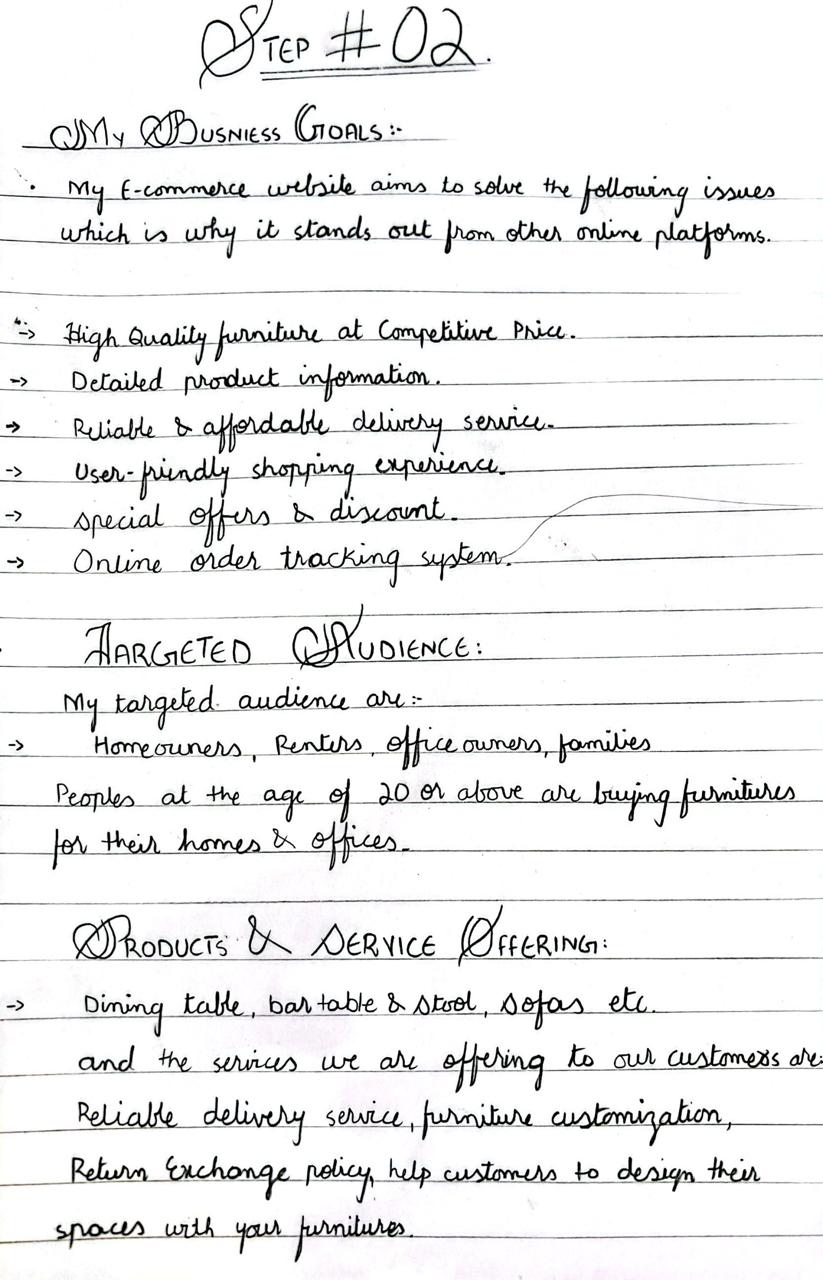 STEP # 02.
My BUSNIESS GOALS:-
• My E-commerce website aims to solve the following issues
which is why it stands out from other online platforms.
-> High Quality furniture at Competitive Price.
-> Detailed product information.
-> Reliable & affordable delivery service.
-> User-friendly shopping experience.
-> special offers & discount.
-> Online order tracking system.
TARGETED AUDIENCE:
My targeted audience are:-
-> Homeowners, Renters, office owners, families
Peoples at the age of 20 or above are buying furnitures
for their homes & offices.
PRODUCTS & SERVICE OFFERING:
-> Dining table, bar table & stool, sofas etc.
and the services we are offering to our customers are:
Reliable delivery service, furniture customization,
Return Exchange policy, help customers to design their
spaces with your furnitures.